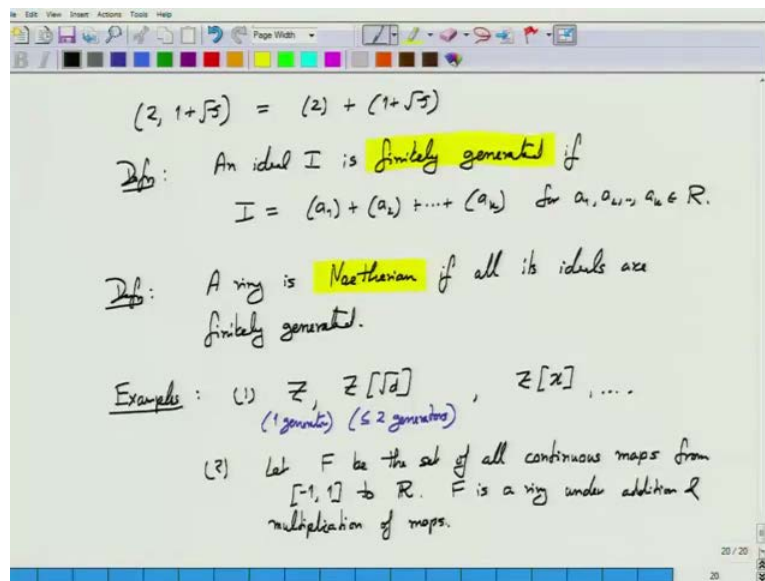 Edit View Insert Actions Tools Help
Page Width
(2, 1+√-5) = (2) + (1+√-5)
Defn: An ideal I is finitely generated if
I = (a₁) + (a₂) + ... + (aₖ) for a₁, a₂, .., aₖ ∈ R.
Defn: A ring is Noetherian if all its ideals are
finitely generated.
Examples: (1) ℤ, ℤ[√d], ℤ[x], ....
(1 generator) (≤ 2 generators)
(2) Let F be the set of all continuous maps from
[-1, 1] to ℝ. F is a ring under addition &
multiplication of maps.
20 / 20
20